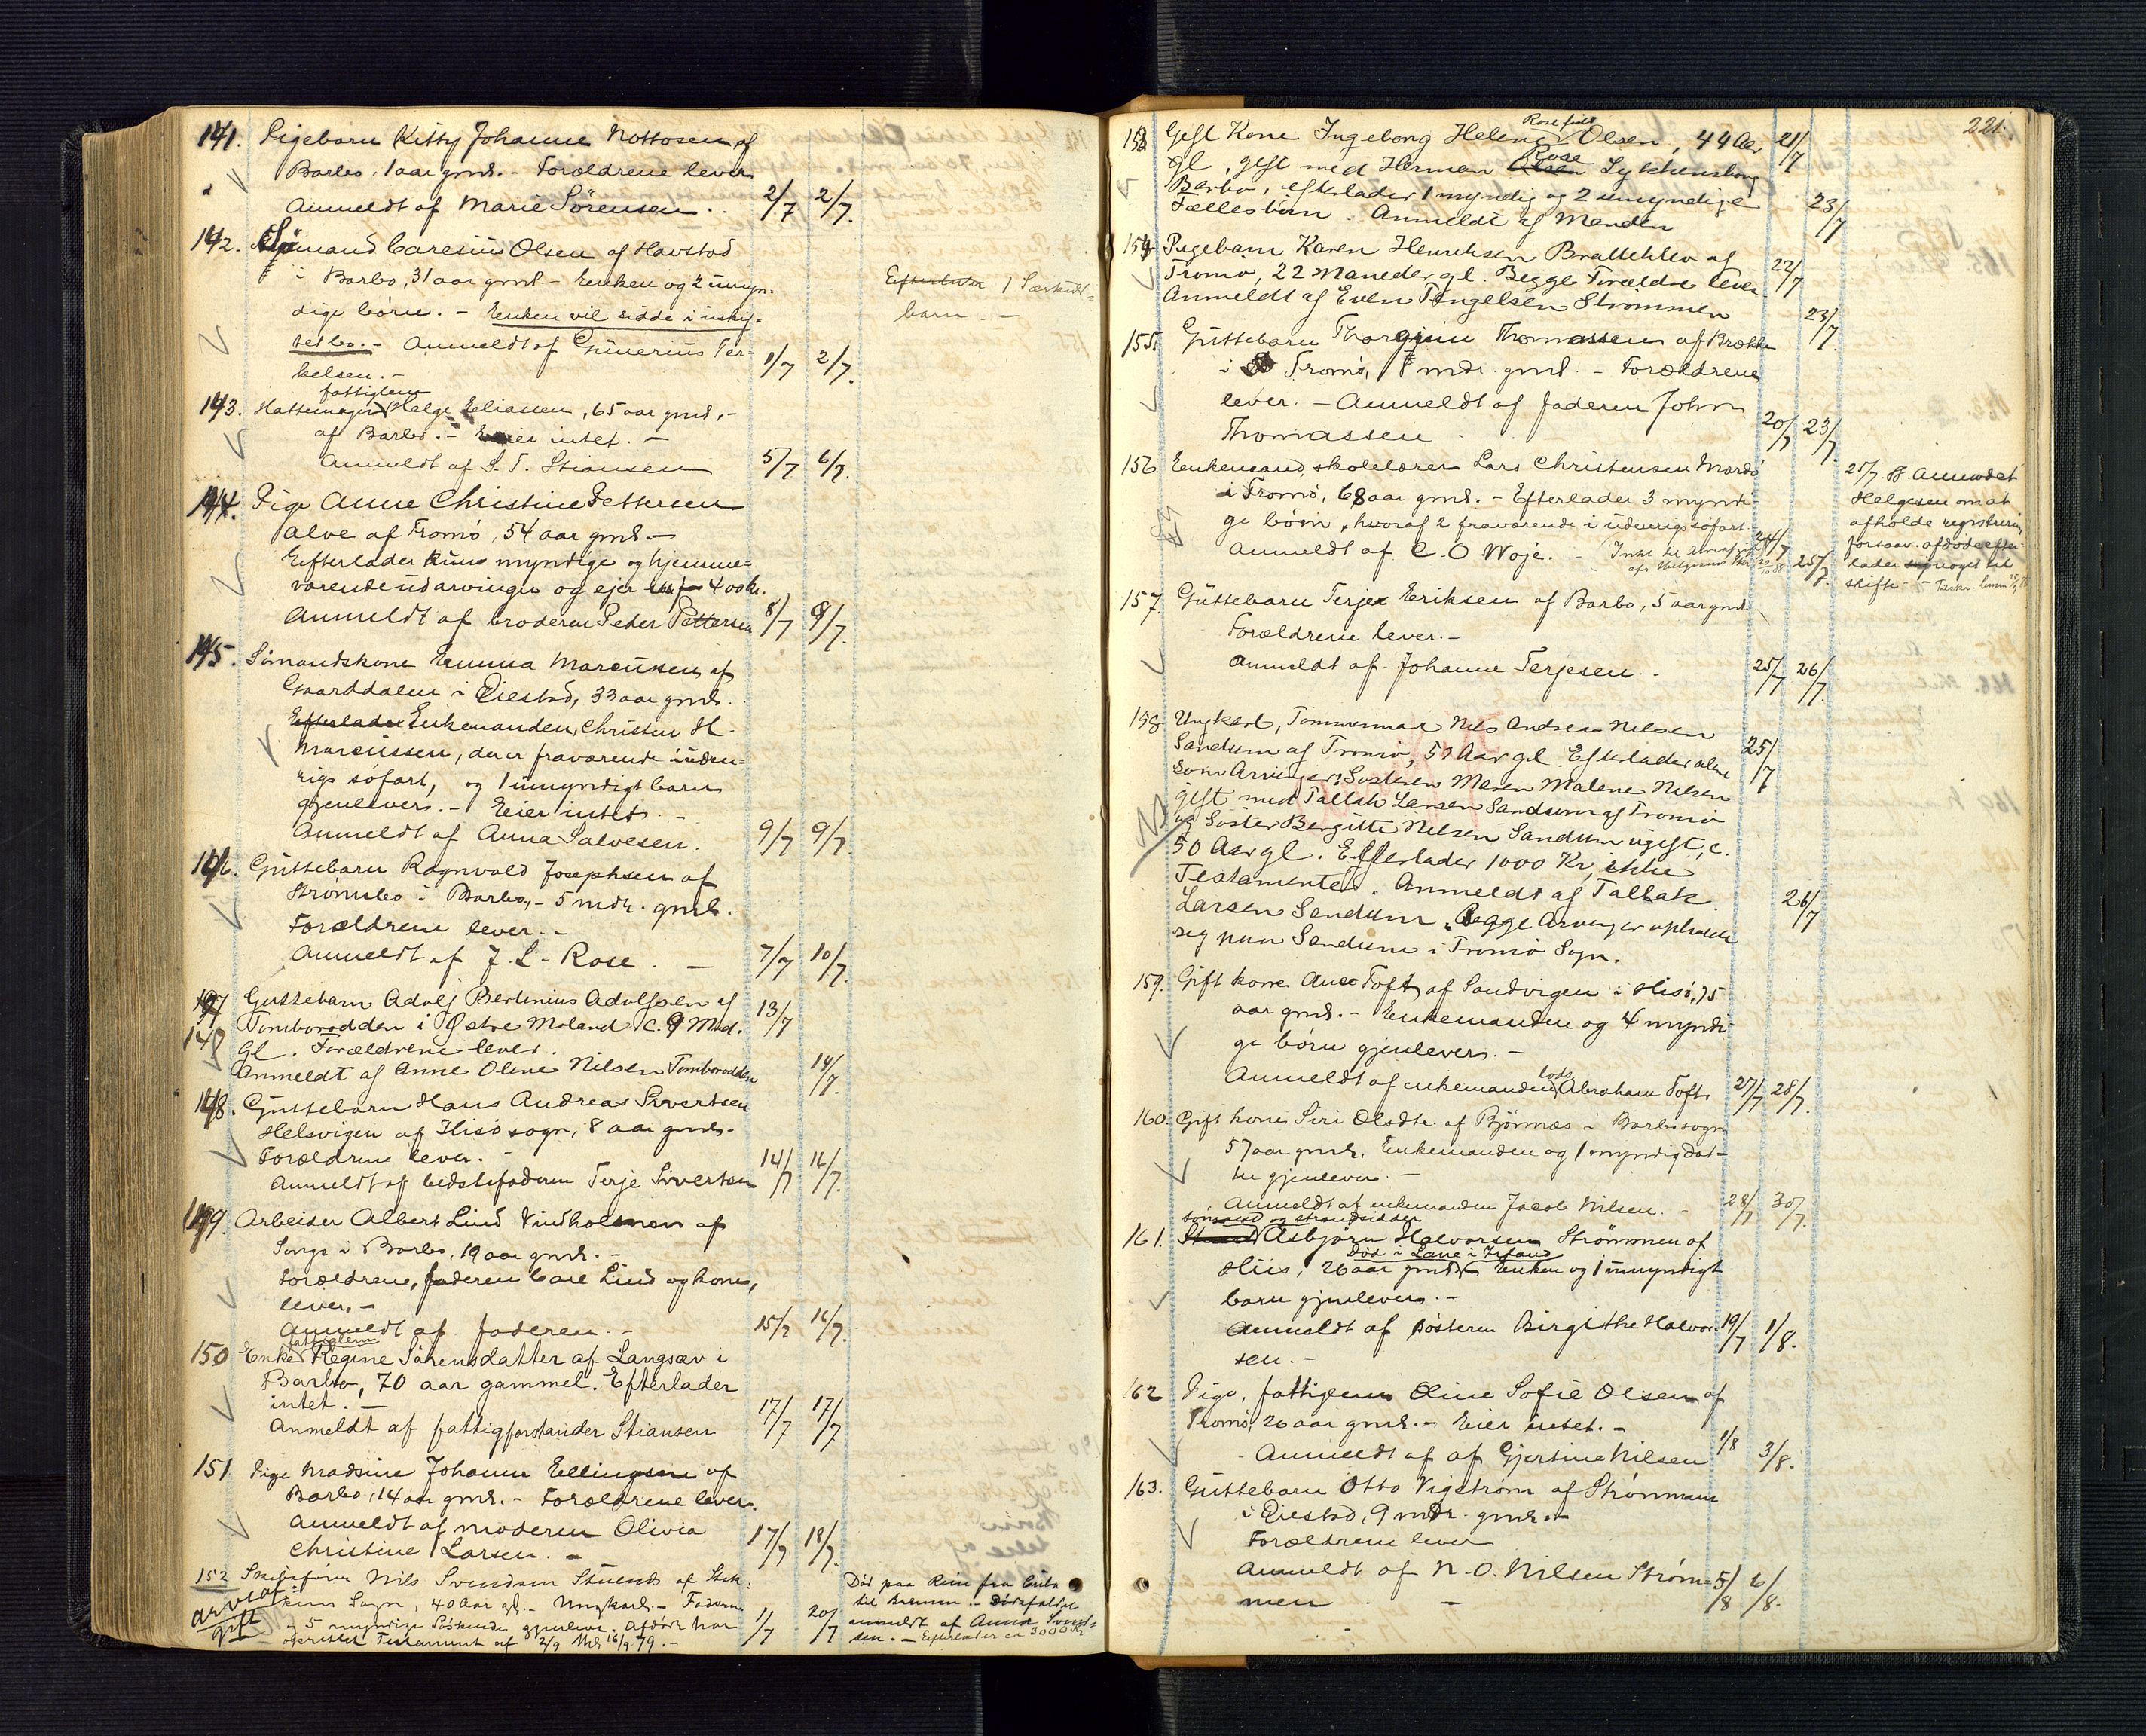 141. Pigebarn Kitty Johanne Nottosen af
Barbo, 1 aar gml. - Forældrene lever
Anmeldt af Marie Sörensen. 2/7 2/7.
142. Sömand Caresius Olsen af Havstad
i Barbo, 31 aar gml. - Enken og 2 umyn-
dige börn. - Enken vil sidde i uskif-
tet bo. - Anmeldt af Gunerius Ter-
kelsen. - 1/7 2/7.
Efterlader 1 Særkuld-
barn. -
fattiglem
143. Hattemager Helge Eliassen, 65 aar gml, -
af Barbo. - Eier intet. -
Anmeldt af S. T. Stiansen 5/7 6/7.
144. Pige Anne Christine Pettersen
Alve af Tromö, 54 aar gml. -
Efterlader kuns myndige og hjemme-
værende udarvinger og ejer 400 kr.
Anmeldt af broderen Peder Pettersen 8/7 9/7.
145. Sömandskone Emma Marcussen af
Gaarddalen i Öiestad, 33 aar gml.
Efterlader Enkemanden, Christen H.
Marcussen, der er fraværende i uden-
rigs söfart, og 1 umyndigt barn
gjenlever. - Eier intet. -
Anmeldt af Anna Salvesen. 9/7 9/7.
146. Guttebarn Ragnvald Josephsen af
Strömsbo i Barbo, - 5 mdr. gml.
Forældrene lever. -
Anmeldt af J. L. Rose. - 7/7 10/7.
147 Guttebarn Adolf Bertinius Adolfsen af 13/7
Tomborodden i Østre Moland c. 9 Mnd.
gl. Forældrene lever.
Anmeldt af Anne Oline Nilsen Tomborodden 14/7.
148. Guttebarn Hans Andreas Sivertsen
Helsvigen af Hisö sogn, 8 aar gml. -
Forældrene lever. -
Anmeldt af bedstefaderen Terje Sivertsen 14/7 16/7.
149. Arbeider Albert Lind Vindholmen af
Songe i Barbo, 19 aar gml. -
Forældrene, faderen Carl Lind og kone,
lever. -
Anmeldt af faderen. - 15/7 16/7.
fattiglem
150 Enke Regine Sörensdatter af Langsæv i
Barbo, 70 aar gammel. Efterlader
intet. -
Anmeldt af fattigforstander Stiansen 17/7 17/7
151 Pige Madsine Johanne Ellingsen af
Barbo, 14 aar gml. - Forældrene lever.
Anmeldt af moderen Olivia
Christine Larsen. - 17/7 18/7.
152 Skibsförer Nils Svendsen
Sogn, 40 Aar gl. - Ungkarl. - Faderen
og 5 myndige Söskende gjenlever. Afdöde har
oprettet Testament af 2/9 16/9 79. - 1/7 20/7
Död paa Rein fra Cuba
til Bremen. - Dödsfaldet
anmeldt af Anna Svend-
sen. - Efterlader ca 3000 Kr
221.
Rose föd
153 Gift Kone Ingeborg Helene Olsen, 44 Aar 21/7
gl, gift med Herman Olsen Rose Lykkensborg
Barbo, efterlader 1 myndig og 2 umyndige
Fællesbörn. Anmeldt af Manden 23/7
154 Pigebarn Karen Henriksen Brattekley af
Tromö, 22 Maaneder gl. Begge Forældre lever 22/7
Anmeldt af Even Tengelsen Strømmen 23/7.
155. Guttebarn Thorgrim Thomassen af Brække
i Tromö, 8 mdr. gml. - Forældrene
lever. - Anmeldt af faderen John
Thomassen. 20/7 23/7.
156. Enkemand, skolelærer Lars Christensen Mardö
i Tromö, 68 aar gml. - Efterlader 3 myndi-
ge börn, hvoraf 2 fraværende i udenrigs söfart.
Anmeldt af C. O. Woje. - 24/7 25/7.
25/7 88 Anmodet
Helgesen om at
afholde registrering
forsaav. afdöde efter-
lader noget til
skifte. -
157. Guttebarn Terje Eriksen af Barbo, 5 aar gml
Forældrene lever. -
Anmeldt af Johanne Terjesen. 25/7 26/7.
158 Ungkarl, Tömmermand Nils Andreas Nilsen
Sandum af Tromö, 57 Aar gl. Efterlader alene 25/7
som Arvinger, Søsteren Maren Malene Nilsen
gift med Tallak Larsen Sandum af Tromö
og Söster Bergitte Nilsen Sandum ugift, c.
50 Aar gl. Efterlader 1000 Kr, ikke
Testamente. Anmeldt af Tallak
Larsen Sandum. Begge Arvinger opholde 26/7
sig paa Sandum i Tromö Sogn.
159. Gift kone Ane Toft af Sandvigen i Hisö, 75
aar gml. - Enkemanden og 4 myndi-
ge börn gjenlever. -
Anmeldt af enkemanden lods Abraham Toft. 27/7 28/7.
160. Gift kone Siri Olsdtr. af Björnnæs i Barbo sogn
57 aar gml. Enkemanden og 1 myndig dat-
ter gjenlever. -
Anmeldt af enkemanden Jacob Nilsen. - 28/7 30/7.
sömand og strandsidder
161. Asbjörn Halvorsen Strömmen af
Död i Lane i Irland
Hiis, 26 aar gml. - Enken og 1 umyndigt
barn gjenlever. -
Anmeldt af söster Birgithe Halvor- 19/7 1/8.
sen. -
162 Pige, fattiglem Oline Sofie Olsen af
Tromö, 26 aar gml. - Eier intet. -
Anmeldt af af Gjertine Nilsen 1/8 3/8.
163. Guttebarn Otto Vigström af Strömmen
i Öiestad, 9 mdr. gml. -
Forældrene lever
Anmeldt af N. O. Nilsen Ström- 5/8 6/8.
men -